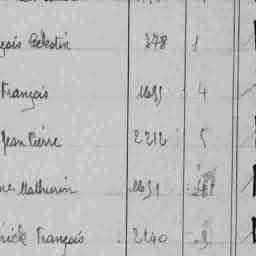 çois Célestin 378 1
François 1695 4
Jean Pierre 2212 5
ne Mathurin 1651
rick François 2240